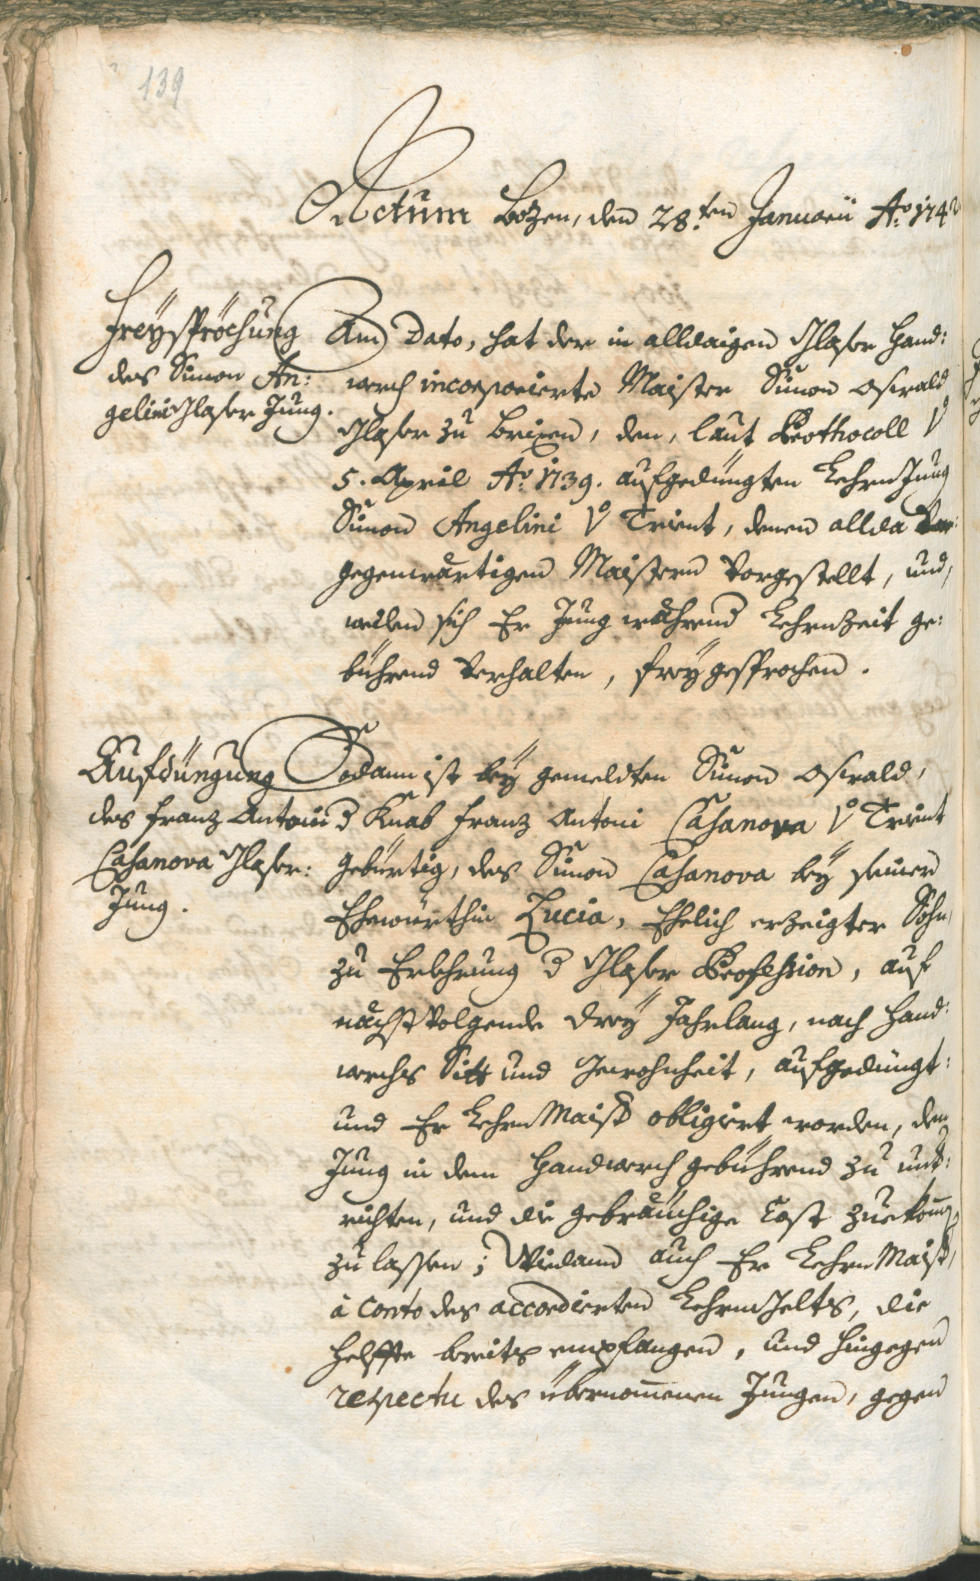 139
Actum Bozen, den 28.ten Januarii Aõ 1742
Freÿsprechung
des Simon An:
gelini Glaser Jung.
Am Dato, hat der in alldaigen Glaser Hand:
werch incorporierte Maister Simon Oswald
Glaser zu Brixen, den, laut Prothocoll vo
5. April Aõ 1739. aufgedüngten Lehrn Jung
Simon Angelini vo Trient, denen allda
gegenwärtigen Maistern vorgestellt, und,
weilen sich Er Jung während Lehrnzeit ge:
bührend verhalten, freÿ gesprochen.
Aufdüngung
des Franz Antoni
Casanova Glaser:
Jung.
Sodann ist beÿ gemeldten Simon Oswald,
d Knab Franz Antoni Casanova vo Trient
gebürtig, des Simon Casanova beÿ seiner
Ehewürthin Lucia, Ehelich erzeigter Sohn,
zu Erlehrnung d Glaser Profession, auf
nächstvolgende dreÿ Jahrlang, nach Hand:
werchs Sitt und Gewohnheit, aufgedüngt:
und Er Lehrn Maist obligiert worden, den
Jung in dem Handwerch gebührend zu unt:
richten, und die gebräuchige Cost zuekomen
zu lassen; Wiedann auch Er Lehrn Maist,
à Conto des accordierten Lehrn Gelts, die
Helffte bereits empfangen, und hingegen
respectu des übernomenen Jungen, gegen